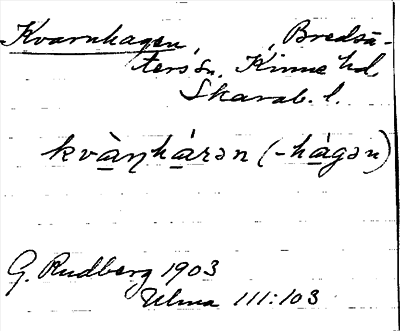 Kvarnhagen, , Bredsä-
ters sn. Kinne hd.
Skarab. l.
kvàṇhárən (-hágən)
G. Rudberg 1903
Ulma 111:103